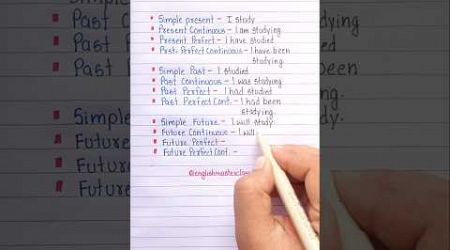 Simple present - I study
Present Continuous - I am studying.
Present Perfect - I have studied
Perfect Continuous - I have been
studying.
Simple Past - I studied
Past Continuous - I was studying
Past Perfect - I had studied
Past Perfect Cont. - I had been
studying.
Simple Future - I will study.
Future Continuous - I will
Future Perfect -
Future Perfect Cont. -